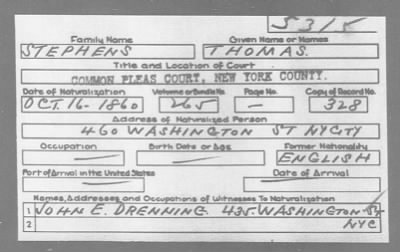 S315
Family Name Given Name or Names
STEPHENS THOMAS.
Title and Location of Court
COMMON PLEAS COURT, NEW YORK COUNTY.
Date of Naturalization Volume or Bundle No. Page No. Copy of Record No.
OCT. 16- 1860 265 — 328
Address of Naturalized Person
460 WASHINGTON ST NYCITY
Occupation Birth Date or Age Former Nationality
— — ENGLISH
Port of Arrival in the United States Date of Arrival
— —
Names, Addresses and Occupations of Witnesses To Naturalization
1 JOHN E. DRENNING. 435 WASHINGTON ST
2 NYC